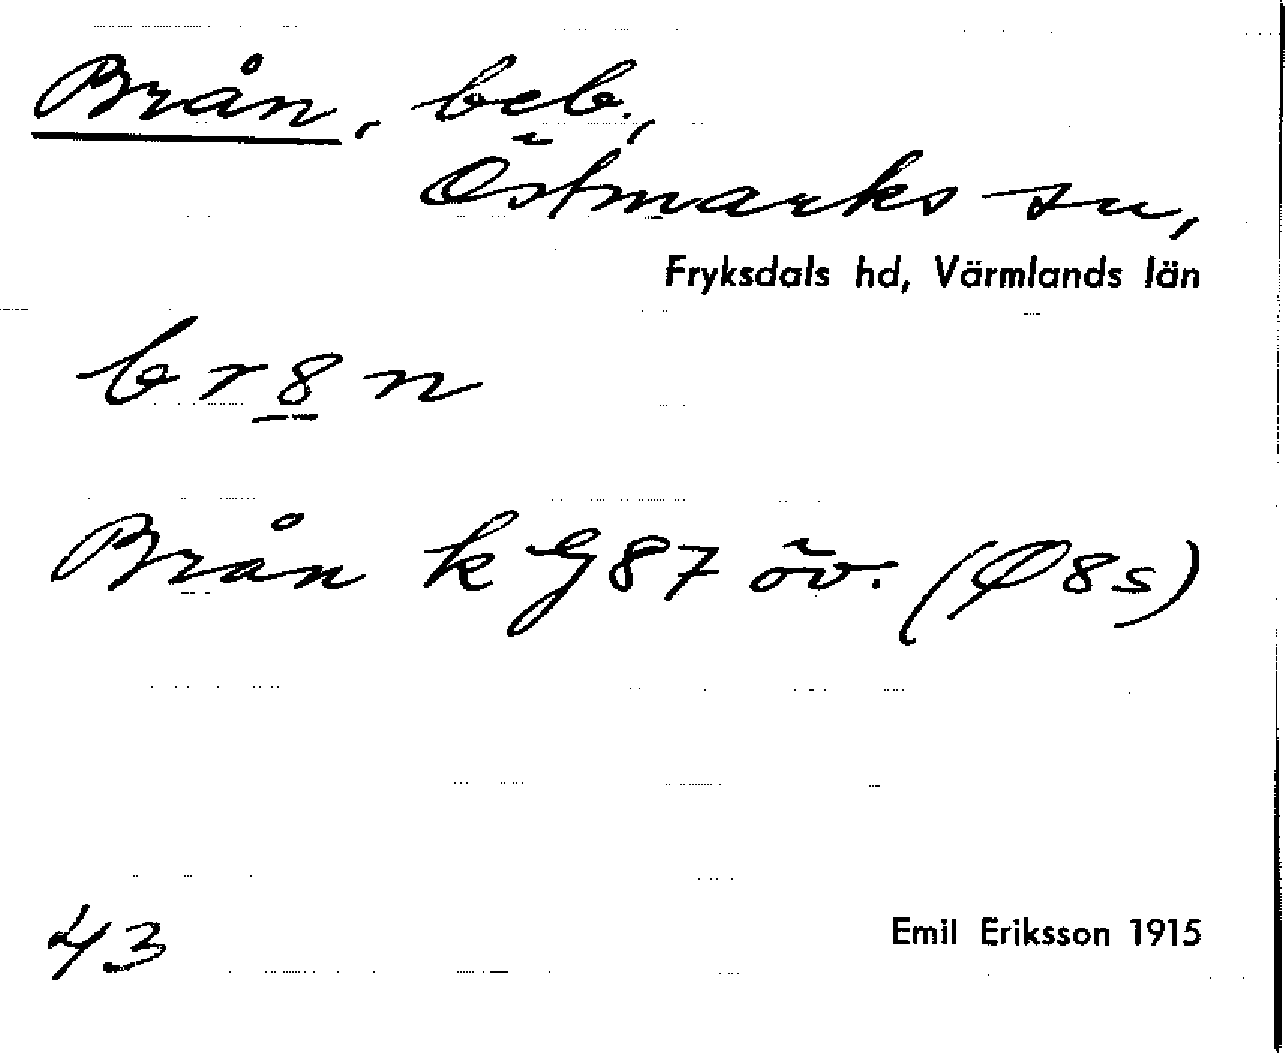 Brån, beb.,
Östmarks sn,
Fryksdals hd, Värmlands län
br8n
Brån k G87 öv. (Ø8s)
43
Emil Eriksson 1915